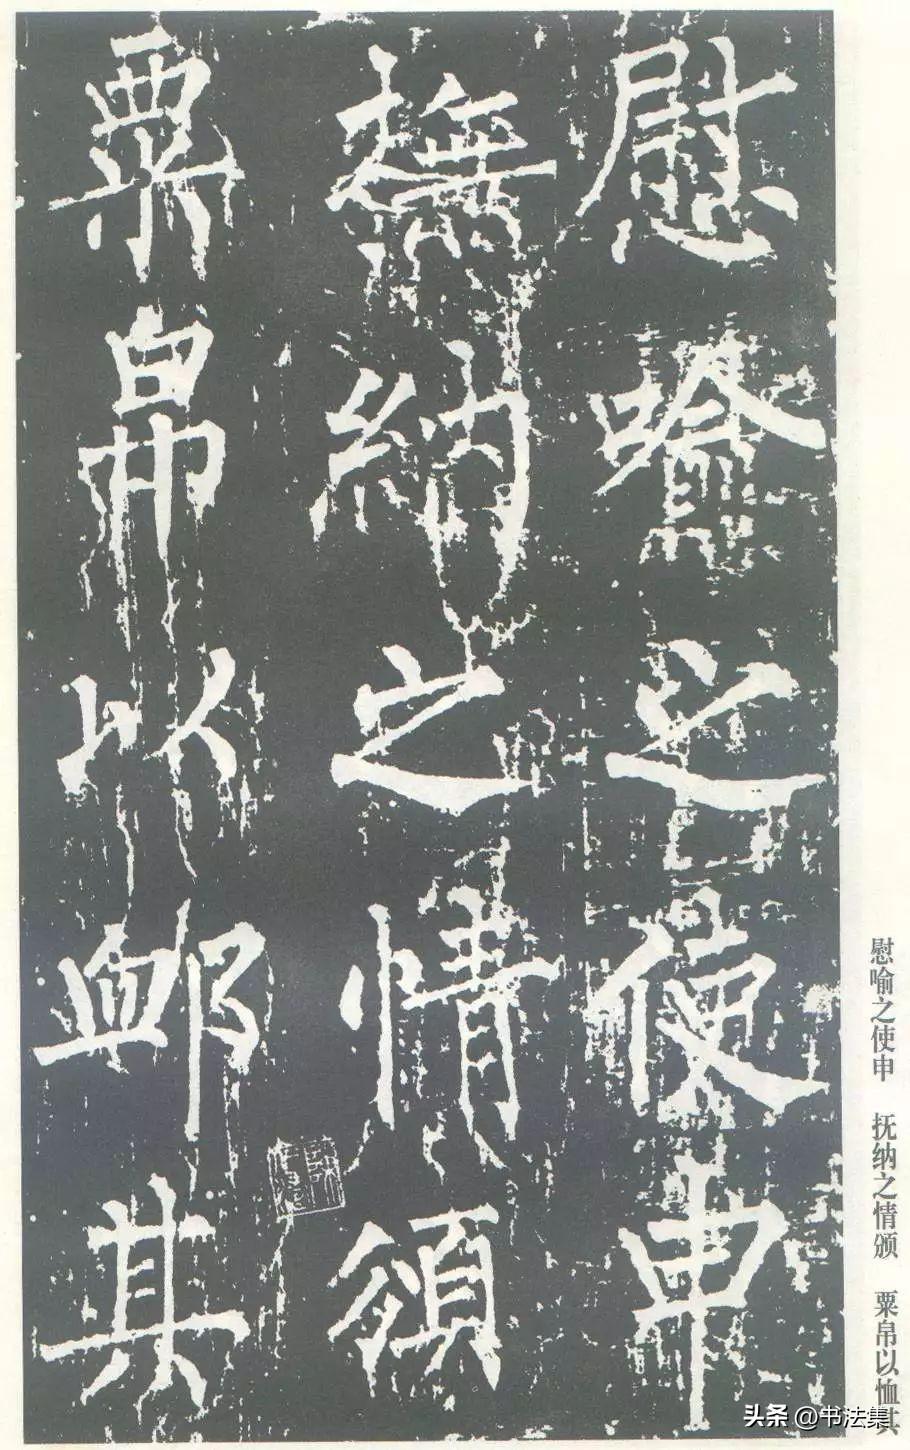 慰喻之使申
撫納之情頒
粟帛以卹其
慰喻之使申 抚纳之情颁 粟帛以恤其
头条 @书法集